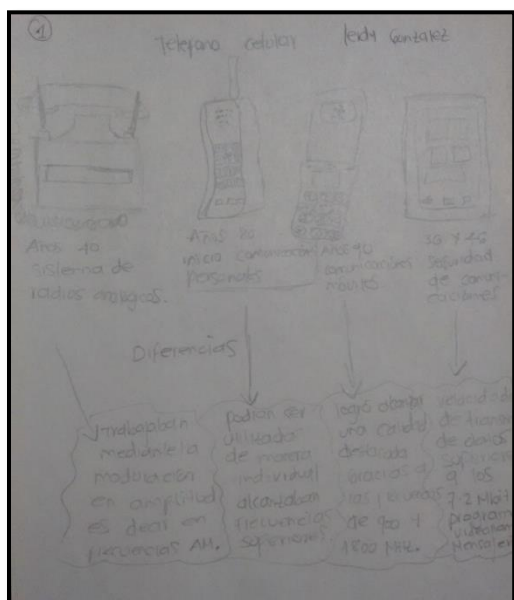 1
Telefono celular
leidy Gonzalez
Años 40
sistema de
radios analogicos.
Años 80
inicia comunicacion
personales
Años 90
comunicaciones
moviles
3G Y 4G
seguridad
de comuni
caciones
Diferencias
Trabajaban
mediante la
modulacion
en amplitud
es decir en
frecuencias AM.
podian ser
utilizada
de manera
individual
alcanzaban
frecuencias
superiores
logró alcanzar
una calidad
gracias a
de 900 y
1800 MHz.
velocidad
de datos
superiores
a los
7.2 Mbit